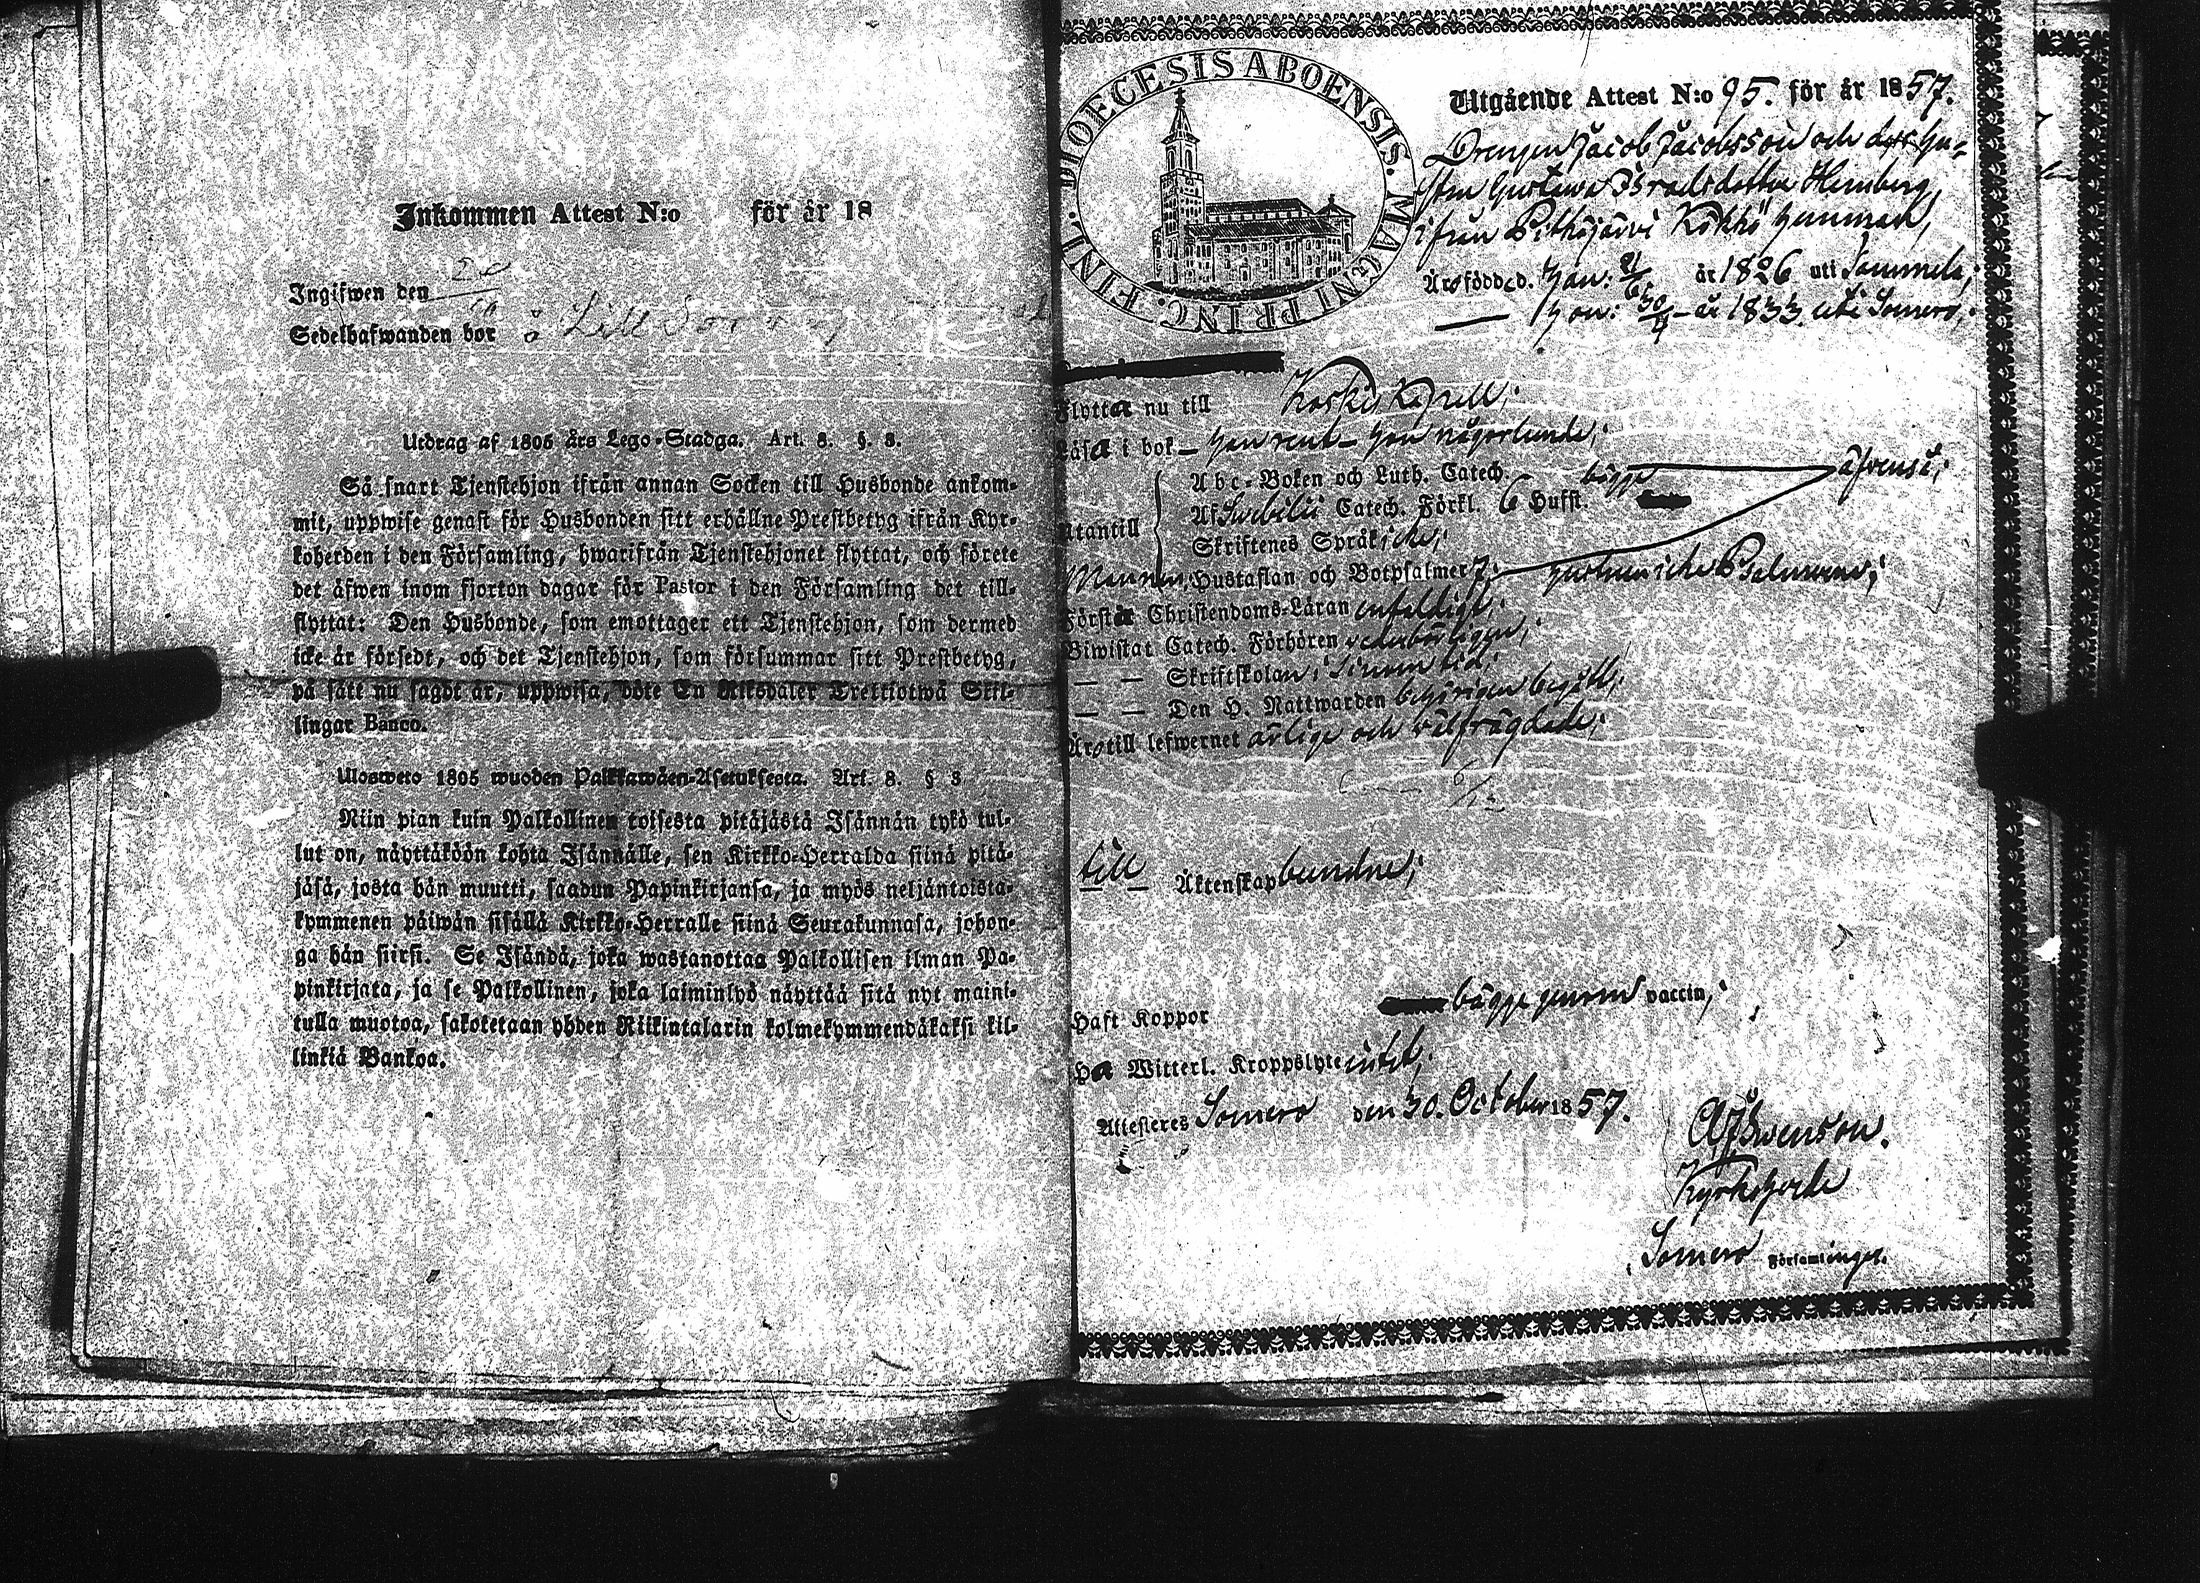 Inkommen Attest N:o för år 18
Ingifwen den
Sedelhafwanden bor å Lill
Utdrag af 1805 års Lego-Stadga. Art. 8. §. 8.
Så snart Tjenstehjon ifrån annan Socken till Husbonde ankom-
mit, uppwise genast för Husbonden sitt erhållne Prestbetyg ifrån Kyr-
koherden i den Församling, hwarifrån Tjenstehjonet flyttat, och förete
det äfwen inom fjorton dagar för Pastor i den Församling det till-
flyttat: Den Husbonde, som emottager ett Tjenstehjon, som dermed
icke är försedt, och det Tjenstehjon, som försummar sitt Prestbetyg,
på sätt nu sagdt är, uppwisa, böte En Riksdaler Trettiotwå Skil-
lingar Banco.
Ulosweto 1805 wuoden Palkkawäen-Asetuksesta. Art. 8. § 8
Niin pian kuin Palkollinen toisesta pitäjästä Isännän tykö tul-
lut on, näyttäköön kohta Isännälle, sen Kirkko-Herralda siinä pitä-
jäsä, josta hän muutti, saadun Papinkirjansa, ja myös neljäntoista-
kymmenen päiwän sisällä Kirkko-Herralle siinä Seurakunnasa, johon-
ga hän siirsi. Se Isändä, joka wastanottaa Palkollisen ilman Pa-
pinkirjata, ja se Palkollinen, joka laiminlyö näyttää sitä nyt maini-
tulla muotoa, sakotetaan yhden Riikintalarin kolmekymmendäkaksi kil-
linkiä Bankoa.
DIOECESIS ABOENSIS. MAGNI PRINC. FINL.
Utgående Attest N:o 95. för år 1857.
Drengen Jacob Jacobsson och dess Hu-
stru Gustawa Israelsdotter Hernberg,
ifrån Pitkäjärwi Kökkö hemman,
Äro födde d. han: 21/6 år 1826 uti Sommela;
hon: 30/4 år 1833. uti Somero;
Flytta nu till Koskis Kapell;
Läsa i bok - han rent - hon någorlunda;
Utantill
Abc-Boken och Luth. Catech. bägge äfwenså;
Af Swebelii Catech. Förkl. 6 Hufst.
Skriftenes Språk icke;
Mannen, Hustaflan och Botpsalmer 7; hustrun icke Psalmerne;
Förstå Christendoms-Läran enfaldigt;
Biwistat Catech. Förhören wederbörligen;
— — Skriftskolan i sinom tid;
— — Den H. Nattwarden behörigen begått;
Äro till lefwernet ärlige och wälfrägdade;
6/12
till Äktenskap bundne;
Haft Koppor bägge genom vaccin;
Ha Witterl. Kroppslyte intet;
Attesteres Somero den 30. October 1857.
Swenson.
Kyrkoherde
Somero Församlingar.